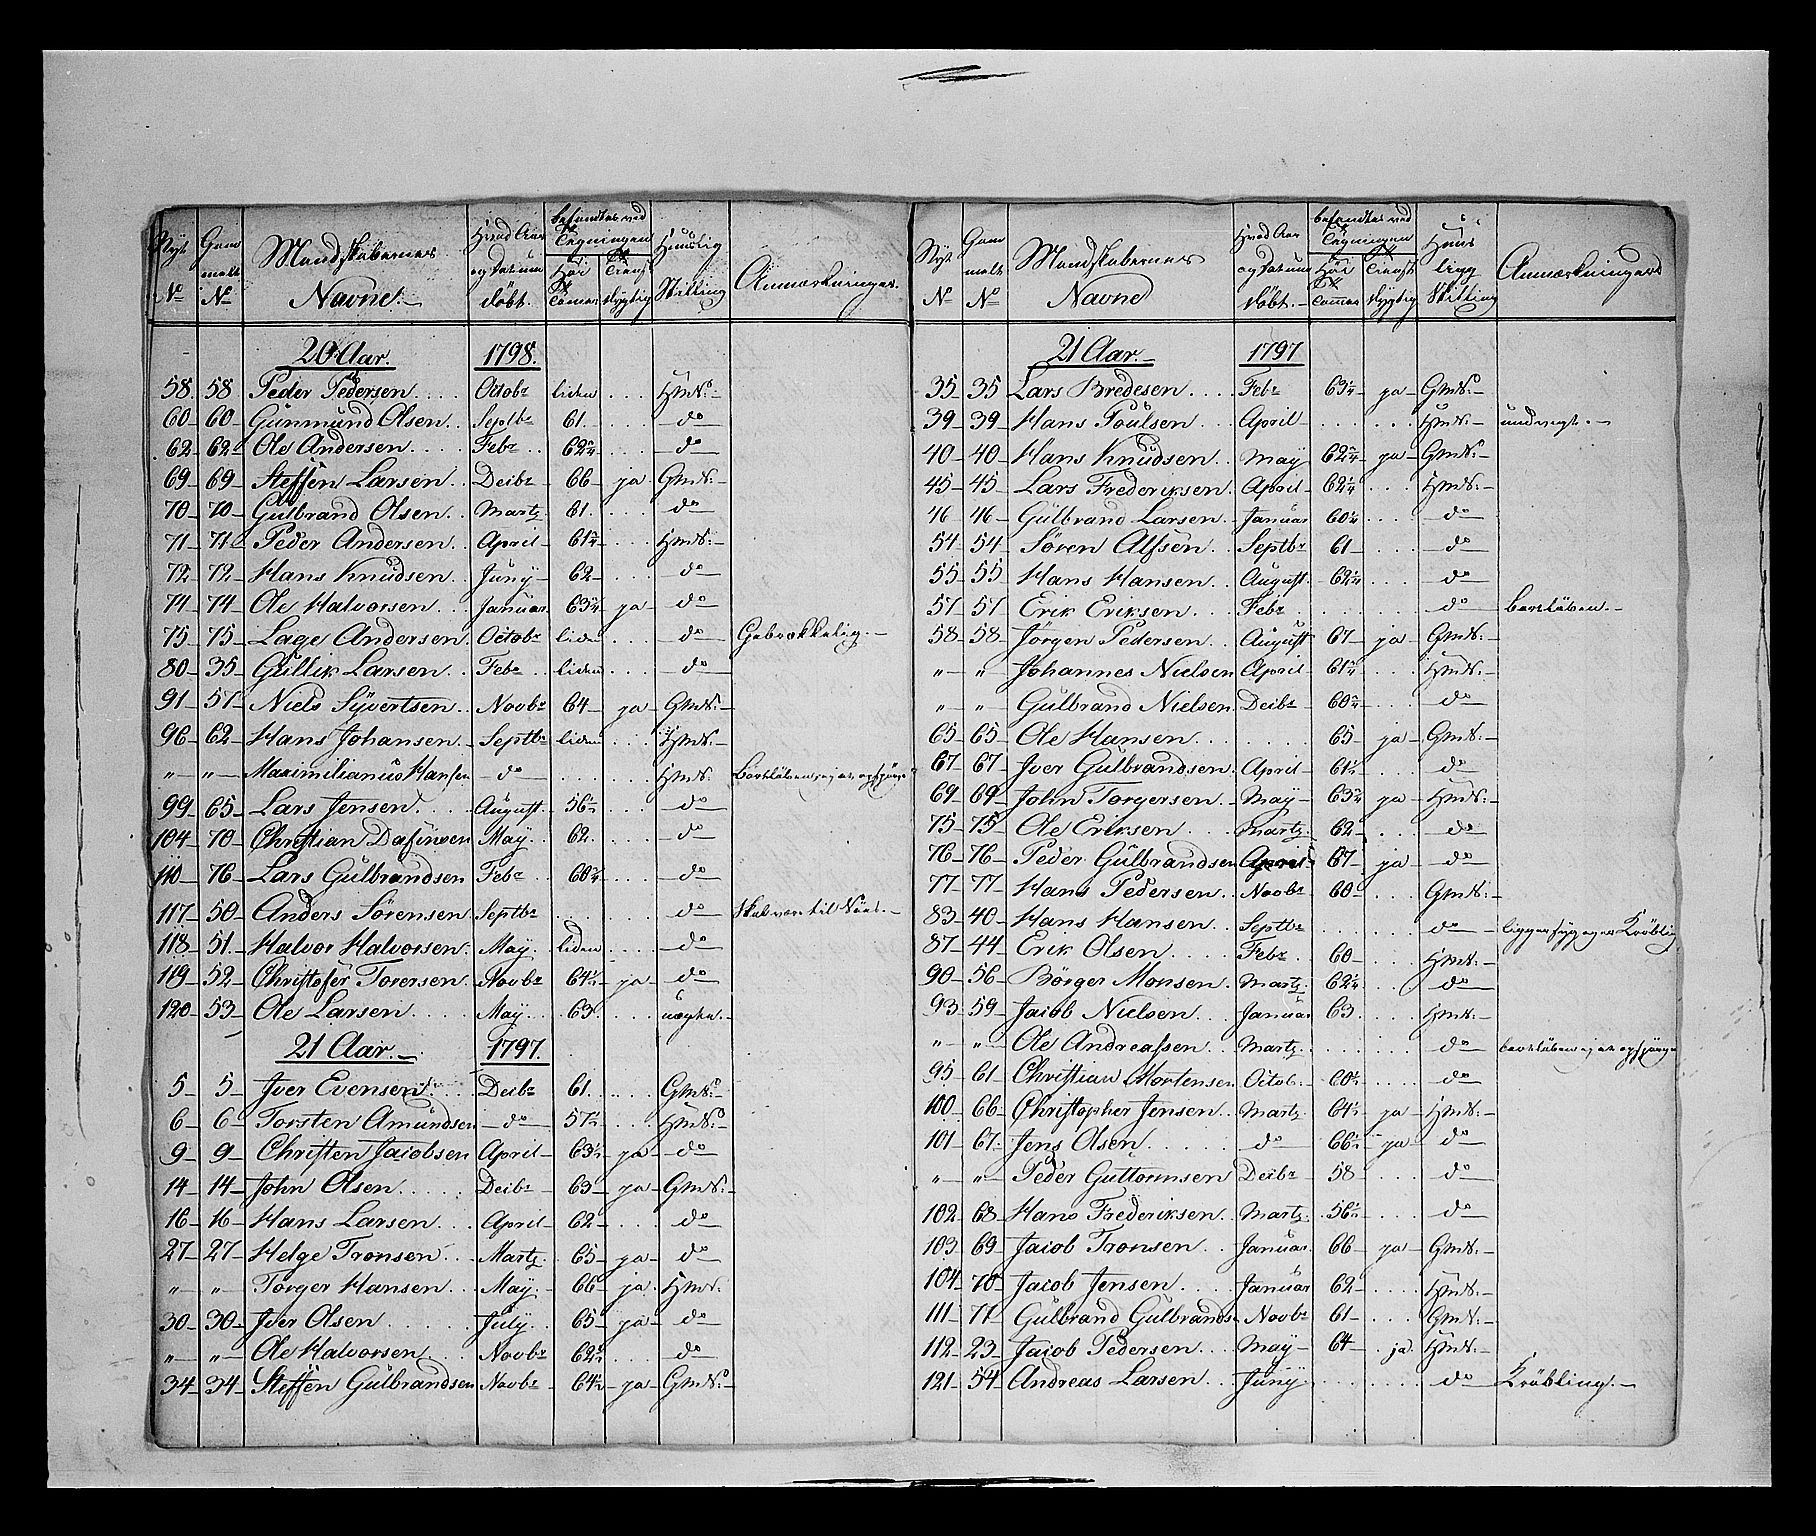 Nyt No | Gammelt No | Mandskabernes Navne.- | Hvad Aar og Datum döbt. | befandtes ved Tegningen: Höi Tommer | Tienstdygtig | Huuslig Stilling | Anmærkninger.
20 Aar.- 1798.
58 58 Peder Pedersen.... Octobr liden ... Hmd:-
60 60 Gunmund Olsen.. Septbr 61. ... do
62 62 Ole Andersen.... Febr 62¾ ... do
69 69 Steffen Larsen.. Decbr 66 ja Gmd:-
70 70 Gulbrand Olsen.. Martz 61. ... do
71 71 Peder Andersen.. April 61¾ ... Hmd:-
72 72 Hans Knudsen.. Juny 62 ... do
74 74 Ole Halvorsen... Januar 63¾ ja do
75 75 Lage Andersen. Octobr lid. ... do Gebrækkelig.-
80 35 Gullik Larsen... Febr liden ... do
91 57 Niels Syvertsen.. Novbr 64 ja Gmd:-
96 62 Hans Johansen.. Septbr liden ... Hmd:-
" " Maximilianus Hansen do ... Hmd:
99 65 Lars Jensen.... August 56½ ... do
104 70 Christian May. 62. ... do
110 76 Lars Gulbrandsen Febr 60¾ ... do
117 50 Anders Sörensen Septbr ... do Skal være til
118 51 Halvor Halvorsen. May. liden ... do
119 52 Christofer Torersen. Novbr 64½ ja do
120 53 Ole Larsen.... May. 63.
21 Aar.- 1797.
5 5 Iver Evensen.. Decbr 61. ... Gmd:-
6 6 Torsten Amundsen do 57½ ... Hmd:-
9 9 Christen Jacobsen April 63½ ja do
14 14 John Olsen..... Decbr 63 ja Gmd:-
16 16 Hans Larsen... April 62 ... do
27 27 Helge Tronsen.. Martz. 65 ja do
" " Torger Hansen.. May. 66 ja Hmd:
30 30 Iver Olsen..... July. 65 ja do
" " Ole Halvorsen... Novbr 62½ ... do
34 34 Steffen Gulbrandsen Novbr 64½ ja Gmd:-
Nyt No | Gammelt No | Mandskabernes Navne | Hvad Aar og Datum döbt.- | befandtes ved Tegningen: Höi Tommer | Tienstdygtig | Huuslig Stilling | Anmærkninger
21 Aar.- 1797
35 35 Lars Bredesen.... Febr 63¼ ja Gmd:-
39 39 Hans Poulsen... April ... Hmd:- undvegt.-
40 40 Hans Knudsen.. May 62¾ ja Gmd:-
45 45 Lars Frederiksen. April 62¼ ... Hmd:-
46 46 Gulbrand Larsen.. Januar 60¼ ... do
54 54 Sören Alfsen... Septbr 61 ... do
55 55 Hans Hansen... August. 62¼ ... do
57 57 Erik Eriksen... Febr ... do bortlöben.-
58 58 Jörgen Pedersen.. August 67 ja Gmd:-
" " Johannes Nielsen April 61¾ ... Hmd:-
" " Gulbrand Nielsen Decbr 60¾ ... do
65 65 Ole Hansen... ... 65 ja Gmd:-
67 67 Iver Gulbrandsen. April 61½ ... do
69 69 John Torgersen.. May 63¾ ja Hmd:-
75 75 Ole Eriksen.... Martz. 62 ... do
76 76 Peder Gulbrandsen April 67 ja do
77 77 Hans Pedersen... Novbr 60 ... Gmd:-
83 40 Hans Hansen... Septbr ... do ligger syg Kröbling
87 44 Erik Olsen..... Febr. 60 ... Hmd:-
90 56 Börger Monsen.. Martz. 62¼ ... do
93 59 Jacob Nielsen... Januar 63. ... Hmd:-
" " Ole Andreassen.. Martz. ... do
95 61 Christian Mortensen Octob. 60½ ... do
100 66 Christopher Jensen.. Martz 64½ ja Hmd:-
101 67 Jens Olsen..... do 66½ ja do
" " Peder Guttormsen Decbr 58 ... do
102 68 Hans Frederiksen. Martz. 56½ ... do
103 69 Jacob Tronsen... Januar. 66 ja Gmd:-
104 70 Jacob Jensen.... Januar 62 ... Hmd:-
111 77 Gulbrand Gulbrands- Novbr 61 ... Gmd:-
112 23 Jacob Pedersen... May 64 ja Hmd:-
121 54 Andreas Larsen... Juny ... do Kröbling.-